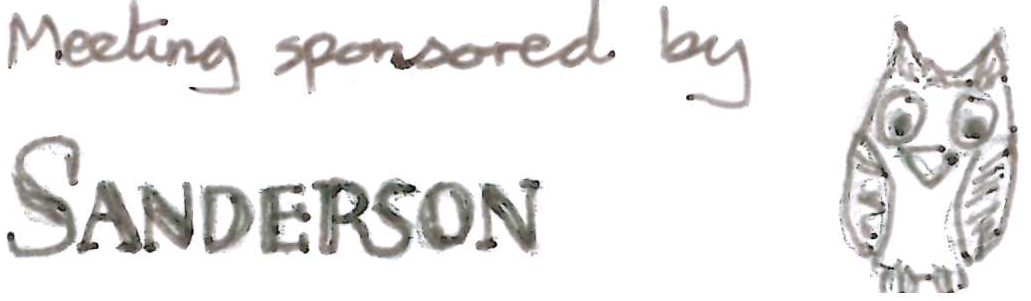 Meeting sponsored by
SANDERSON